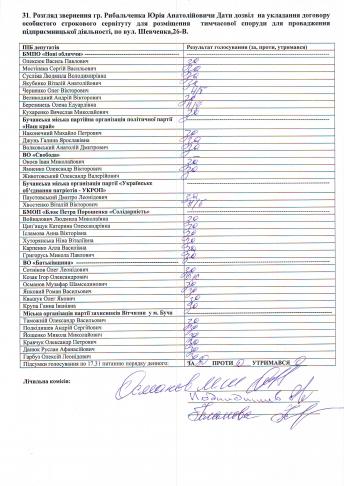 31. Розгляд звернення гр. Рибальченка Юрія Анатолійовичи Дати дозвіл на укладання договору
особистого строкового сервітуту для розміщення тимчасової споруди для провадження
підприємницької діяльності, по вул. Шевченка,26-В.
ПІБ депутатів Результат голосування (за, проти, утримався)
БМПО «Нові обличчя»
Олексюк Василь Павлович за
Мостіпака Сергій Васильович за
Сусліна Людмила Володимирівна за
Якубенко Віталій Анатолійович за
Черненко Олег Вікторович
Великодний Андрій Вікторович за
Березинець Олена Едуардівна
Кухаренко Вячеслав Миколайович за
Бучанська міська партійна організація політичної партії
«Наш край»
Наконечний Михайло Петрович за
Джунь Галина Ярославівна за
Волковський Анатолій Дмитрович за
ВО «Свобода»
Онєєв Іван Миколайович за
Яхненко Олександр Вікторович за
Животовський Олександр Валерійович
Бучанська міська організація партії «Українське
об'єднання патріотів - УКРОП»
Паустовський Дмитро Леонідович
Хвостенко Віталій Вікторович
БМОП «Блок Петра Порошенка «Солідарність»
Войналович Людмила Миколаївна за
Цип'ящук Катерина Олександрівна за
Ісламова Анна Вікторівна за
Хуторянська Ніна Віталіївна за
Карпенко Алла Василівна за
Григорусь Микола Павлович за
ВО «Батьківщина»
Сотніков Олег Леонідович за
Козак Ігор Олександрович
Османов Музафар Шамсадинович за
Яцковий Роман Васильович за
Квашук Олег Якович за
Крупа Ганна Іванівна за
Міська організація партії захисників Вітчизни у м. Буча
Тимошній Олександр Васильович за
Подкідишев Андрій Сергійович за
Йошенко Микола Миколайович за
Кравчук Олександр Петрович за
Данюк Руслан Афанасійович за
Гарбуз Олексій Леонідович за
Підсумки голосування по 17.31 питанню порядку денного: ЗА ПРОТИ 0 УТРИМАВСЯ 0
Лічильна комісія: Османов
Подкідишев
Ісламова